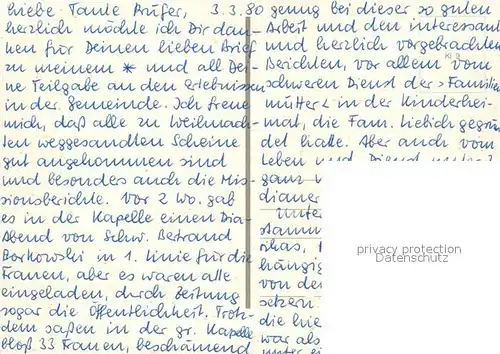 Liebe Tante Prüfer, 3.3.80
herzlich möchte ich Dir dan-
ken für Deinen lieben Brief
zu meinem * und all Dei-
ne Teilgabe an den Erlebnissen
in der Gemeinde. Ich freue
mich, daß alle zu Weihnach-
ten weggesandten Scheine
gut angekommen sind
und besonders auch die Mis-
sionsberichte. Vor 2 Wo. gab
es in der Kapelle einen Dia-
Abend von Schw. Bertrand
Borkowski in 1. Linie für die
Frauen, aber es waren alle
eingeladen, durch Zeitung
sogar die Öffentlichkeit. Trotz-
dem saßen in der gr. Kapelle
bloß 33 Frauen, beschämend
genug bei dieser so guten
Arbeit und den interessant
und herzlich vorgebrachten
Berichten, vor allem vom
schweren Dienst der "Familien
mütter" in der Kinderhei-
mat, die Fam. Liebich gegrün
det hatte. Aber auch vom
Leben und Dienst unter
ganz
dianer
unter
stamm
rikas,
hängig
von der
setzen
die hie
war als
unter ei
privacy protection
Datenschutz